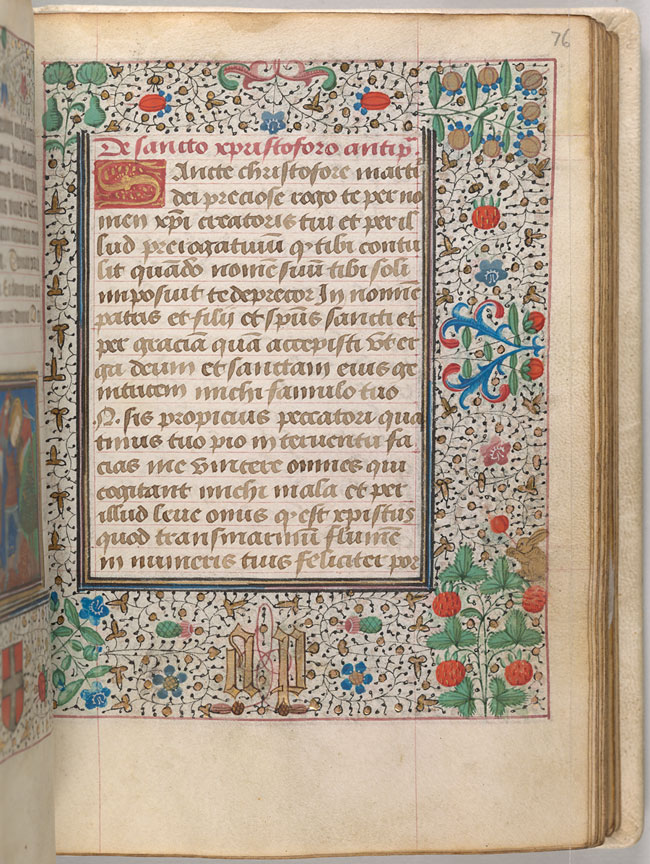 76
De sancto xpristoforo antip̄.
Sancte christofore marti
dei preciose rogo te per no
men xp̄i creatoris tui et per il
lud prerogatiuū q̇ tibi contu
lit quādo nomē suū tibi soli
imposuit te deprecor In nomīe
patris et filij et sp̄us sancti et
per graciā quā accepisti vt er
ga deum et sanctam eius ge
nitricem michi famulo tuo
N. sis propicius peccatori qua
tinus tuo pio interuentu fa
cias me vincere omnes qui
cogitant michi mala et per
illud leue onus q̇ est xpistus
quod transmarinū flumē
in numeris tuis feliciter por